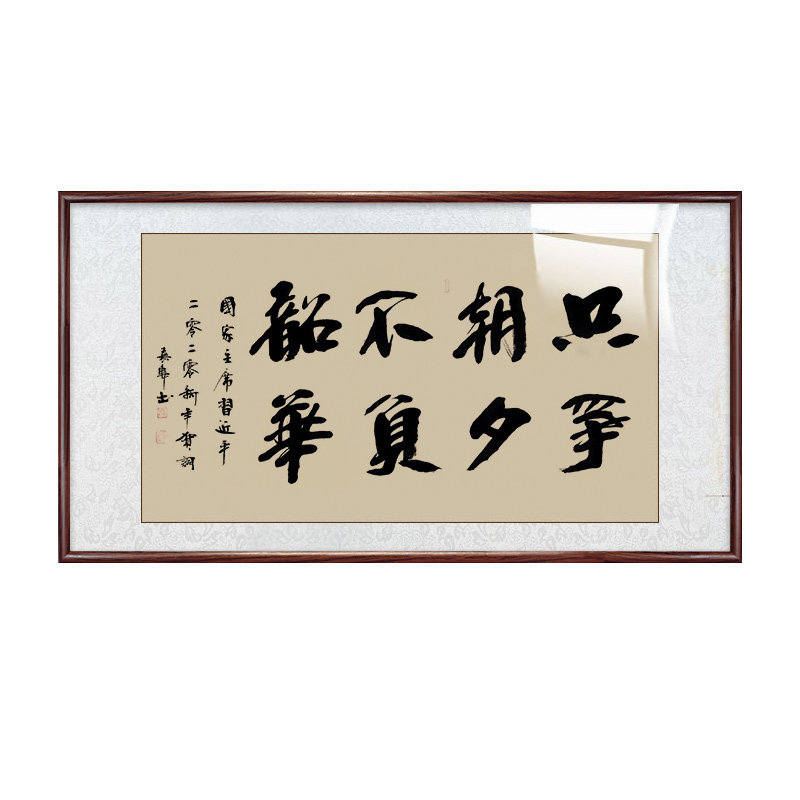 只爭
朝夕
不負
韶華
國家主席習近平
二零二零新年賀詞